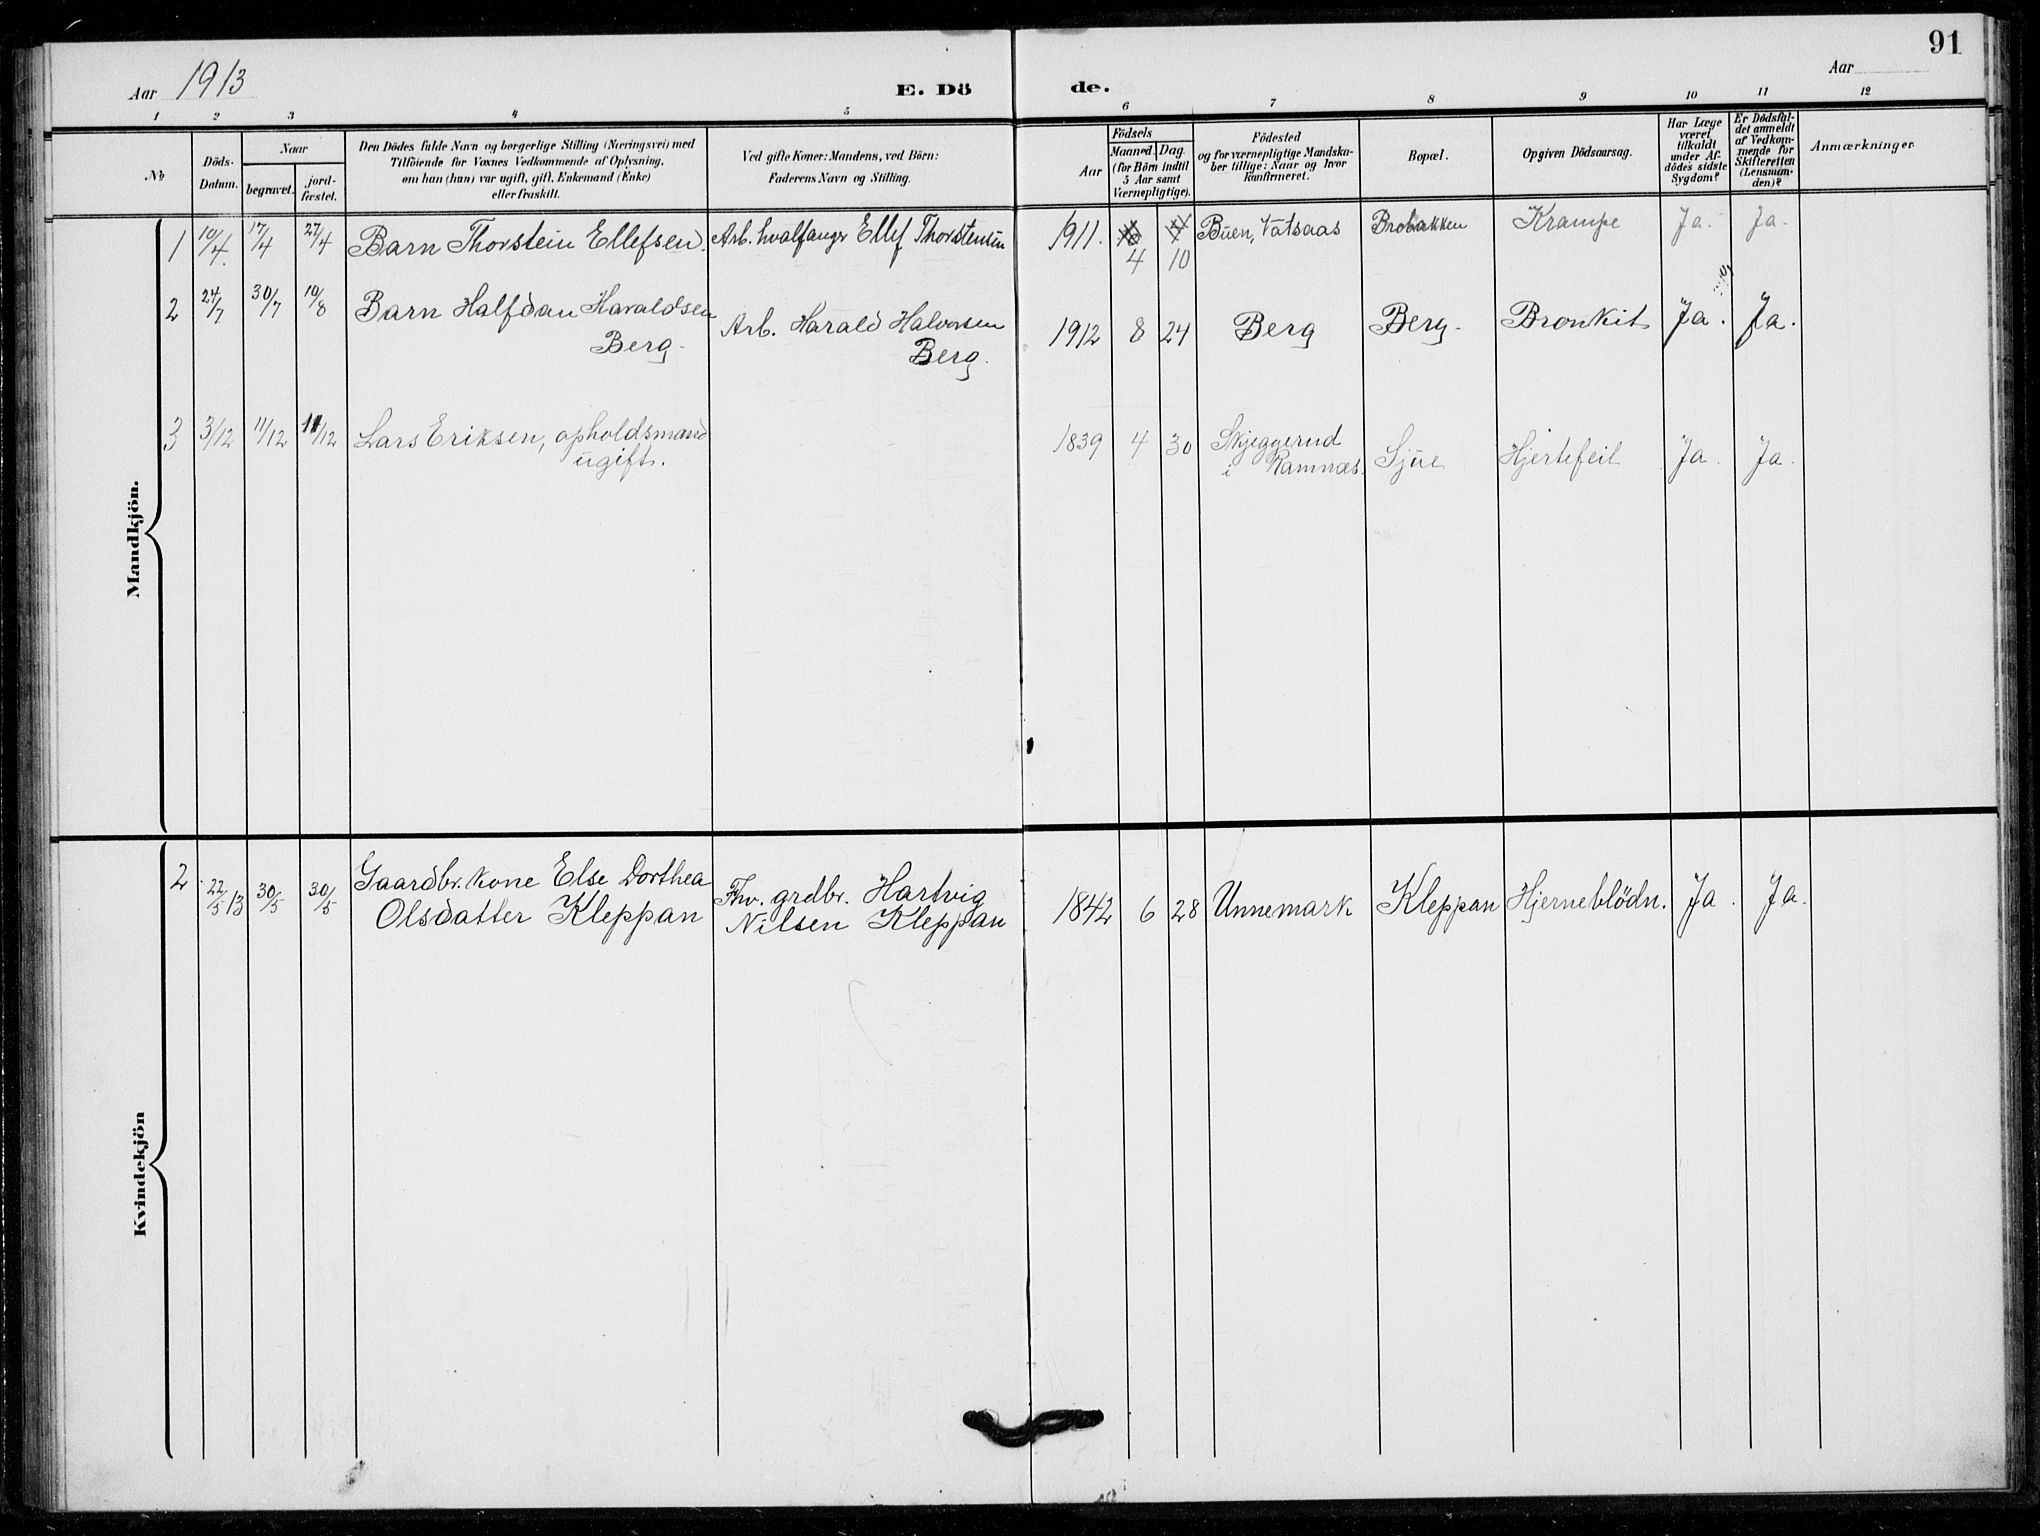 91
Aar 1913
E. Dö
de.
Aar
1 2 3 4 5 6 7 8 9 10 11 12
No
Döds-
Datum.
Naar
begravet.
jord-
fæstet.
Den Dödes fulde Navn og borgerlige Stilling (Næringsvei) med
Tilföiende for Voxnes Vedkommende af Oplysning,
om han (hun) var ugift, gift, Enkemand (Enke)
eller fraskilt.
Ved gifte Koner: Mandens, ved Börn:
Faderens Navn og Stilling.
Födsels
Aar
Maaned. Dag.
(for Börn indtil
5 Aar samt
Værnepligtige).
Födested
og for værnepligtige Mandska-
ber tillige: Naar og hvor
konfirmeret.
Bopæl.
Opgiven Dödsaarsag.
Har Læge
været
tilkaldt
under Af-
dödes sidste
Sygdom?
Er Dödsfal-
det anmeldt
af Vedkom-
mende for
Skifteretten
(Lensman-
den)?
Anmærkninger.
Mandkjön.
1 10/4. 17/4 27/4 Barn Thorstein Ellefsen. Arb. hvalfanger Ellef Thorstensen 1911. 4 10 Buen, Vatsaas Brobakken Krampe Ja. Ja.
2 24/7 30/7 10/8 Barn Halfdan Haraldsen
Berg.
Arb. Harald Halvorsen
Berg.
1912 8 24 Berg Berg. Bronkit Ja. Ja.
3 3/12 11/12 11/12 Lars Eriksen, opholdsmand
ugift.
1839 4 30 Skjeggerud
i Ramnæs. Sjue Hjertefeil Ja. Ja.
Kvindekjön
2 22/5 13 30/5 30/5 Gaardbr. kone Else Dorthea
Olsdatter Kleppan
Fhv. grdbr. Hartvig
Nilsen Kleppan
1842 6 28 Unnemark Kleppan Hjerneblödn. Ja. Ja.